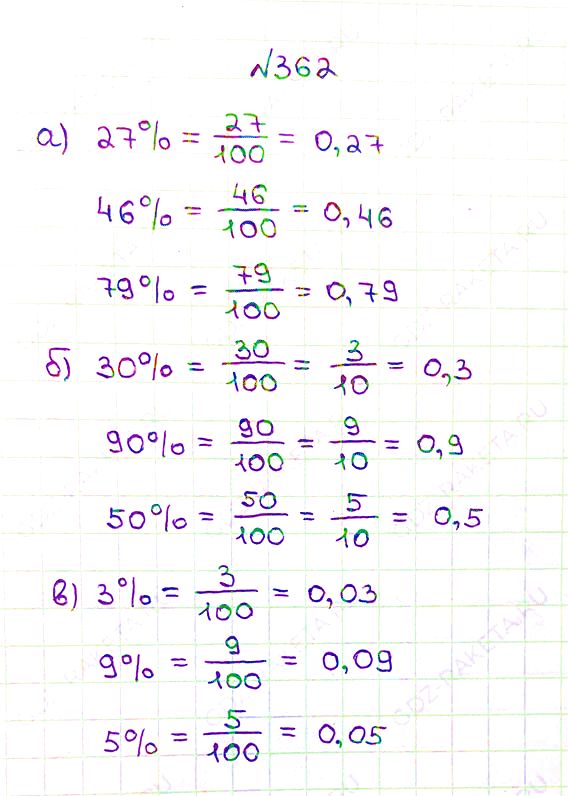 №362
а) 27% = 27/100 = 0,27
46% = 46/100 = 0,46
79% = 79/100 = 0,79
б) 30% = 30/100 = 3/10 = 0,3
90% = 90/100 = 9/10 = 0,9
50% = 50/100 = 5/10 = 0,5
в) 3% = 3/100 = 0,03
9% = 9/100 = 0,09
5% = 5/100 = 0,05
GDZ-RAKETA.RU